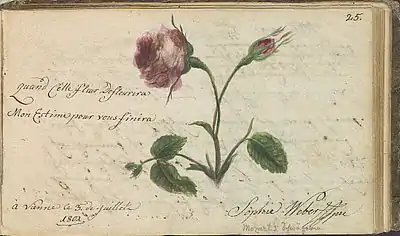 25.
Quand Cette fleur Defleurira
Mon Estime pour vous finira
à Vanne le 3. de juillet
1801
Sophie Weber
Mozart's